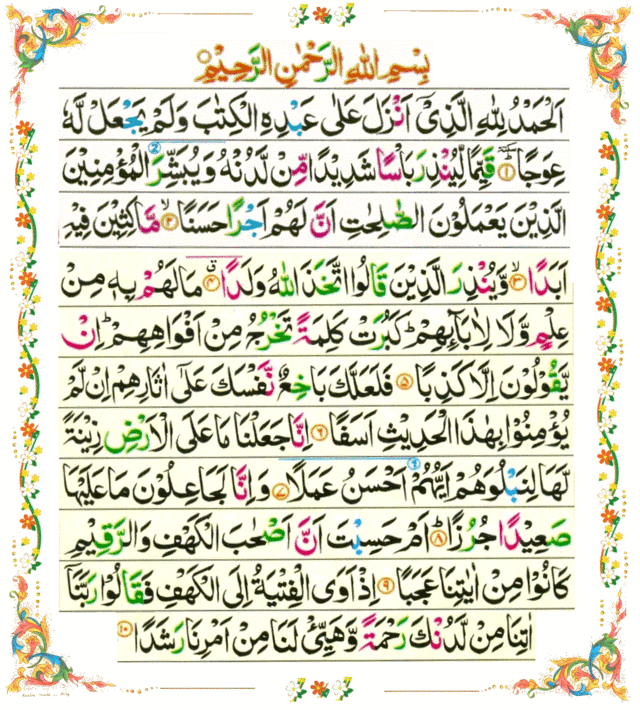 بِسْمِ اللهِ الرَّحْمٰنِ الرَّحِيْمِ
اَلْحَمْدُ لِلّٰهِ الَّذِىْۤ اَنْزَلَ عَلٰى عَبْدِهِ الْكِتٰبَ وَلَمْ يَجْعَلْ لَّهٗ
عِوَجًا ؕ ۱ قَيِّمًا لِّيُنْذِرَ بَاْسًا شَدِيْدًا مِّنْ لَّدُنْهُ وَ يُبَشِّرَ الْمُؤْمِنِيْنَ
الَّذِيْنَ يَعْمَلُوْنَ الصّٰلِحٰتِ اَنَّ لَهُمْ اَجْرًا حَسَنًا ۙ ۲ مَّاكِثِيْنَ فِيْهِ
اَبَدًا ۙ ۳ وَّيُنْذِرَ الَّذِيْنَ قَالُوا اتَّخَذَ اللهُ وَلَدًا ۗ ۴ مَا لَهُمْ بِهٖ مِنْ
عِلْمٍ وَّلَا لِاٰبَآئِهِمْ ؕ كَبُرَتْ كَلِمَةً تَخْرُجُ مِنْ اَفْوَاهِهِمْ ؕ اِنْ
يَّقُوْلُوْنَ اِلَّا كَذِبًا ۵ فَلَعَلَّكَ بَاخِعٌ نَّفْسَكَ عَلٰٓى اٰثَارِهِمْ اِنْ لَّمْ
يُؤْمِنُوْا بِهٰذَا الْحَدِيْثِ اَسَفًا ۶ اِنَّا جَعَلْنَا مَا عَلَى الْاَرْضِ زِيْنَةً
لَّهَا لِنَبْلُوَهُمْ اَيُّهُمْ اَحْسَنُ عَمَلًا ۷ وَ اِنَّا لَجَاعِلُوْنَ مَا عَلَيْهَا
صَعِيْدًا جُرُزًا ؕ ۸ اَمْ حَسِبْتَ اَنَّ اَصْحٰبَ الْكَهْفِ وَالرَّقِيْمِ
كَانُوْا مِنْ اٰيٰتِنَا عَجَبًا ۹ اِذْ اَوَى الْفِتْيَةُ اِلَى الْكَهْفِ فَقَالُوْا رَبَّنَاۤ
اٰتِنَا مِنْ لَّدُنْكَ رَحْمَةً وَّهَيِّئْ لَنَا مِنْ اَمْرِنَا رَشَدًا ۱۰